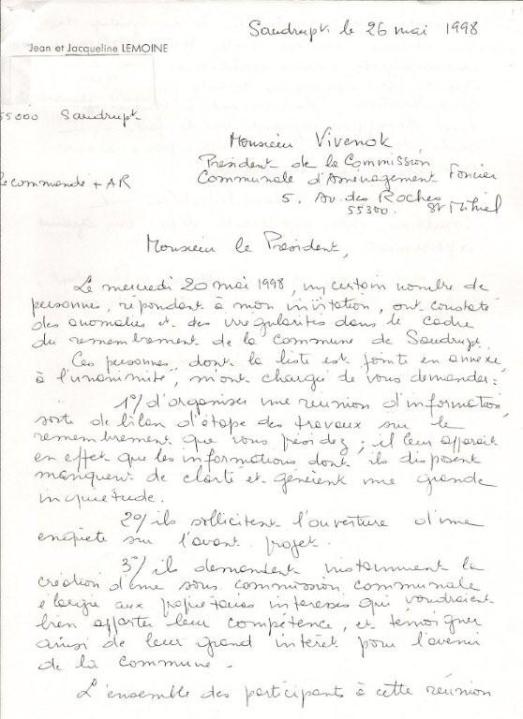 Saudrupt. le 26 mai 1998
Jean et Jacqueline LEMOINE
55000 Saudrupt
Monsieur Vivenok
Président de la Commission
Recommandé + AR
Communale d'Aménagement Foncier
5. Av. des Roches
55300. St Mihiel
Monsieur le Président,
Le mercredi 20 mai 1998, un certain nombre de
personnes, répondant à mon invitation, ont constaté
des anomalies et des irrégularités dans le cadre
du remembrement de la Commune de Saudrupt.
Ces personnes, dont la liste est jointe en annexe,
à l'unanimité, m'ont chargé de vous demander :
1°/ d'organiser une réunion d'information,
sorte de bilan d'étape des travaux sur le
remembrement que vous présidez ; il leur apparait
en effet que les informations dont ils disposent
manquent de clarté et génèrent une grande
inquiétude.
2°/ ils sollicitent l'ouverture d'une
enquête sur l'avant projet.
3°/ ils demandent instamment la
création d'une sous commission communale
élargie aux propriétaires intéressés qui voudraient
bien apporter leur compétence, et témoigner
ainsi de leur grand intérêt pour l'avenir
de la commune.
L'ensemble des participants à cette réunion